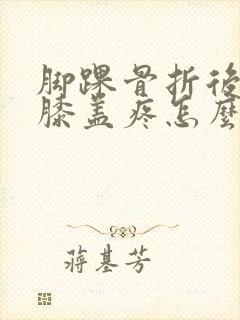 脚踝骨折後
膝盖疼怎麼
蒋基芳